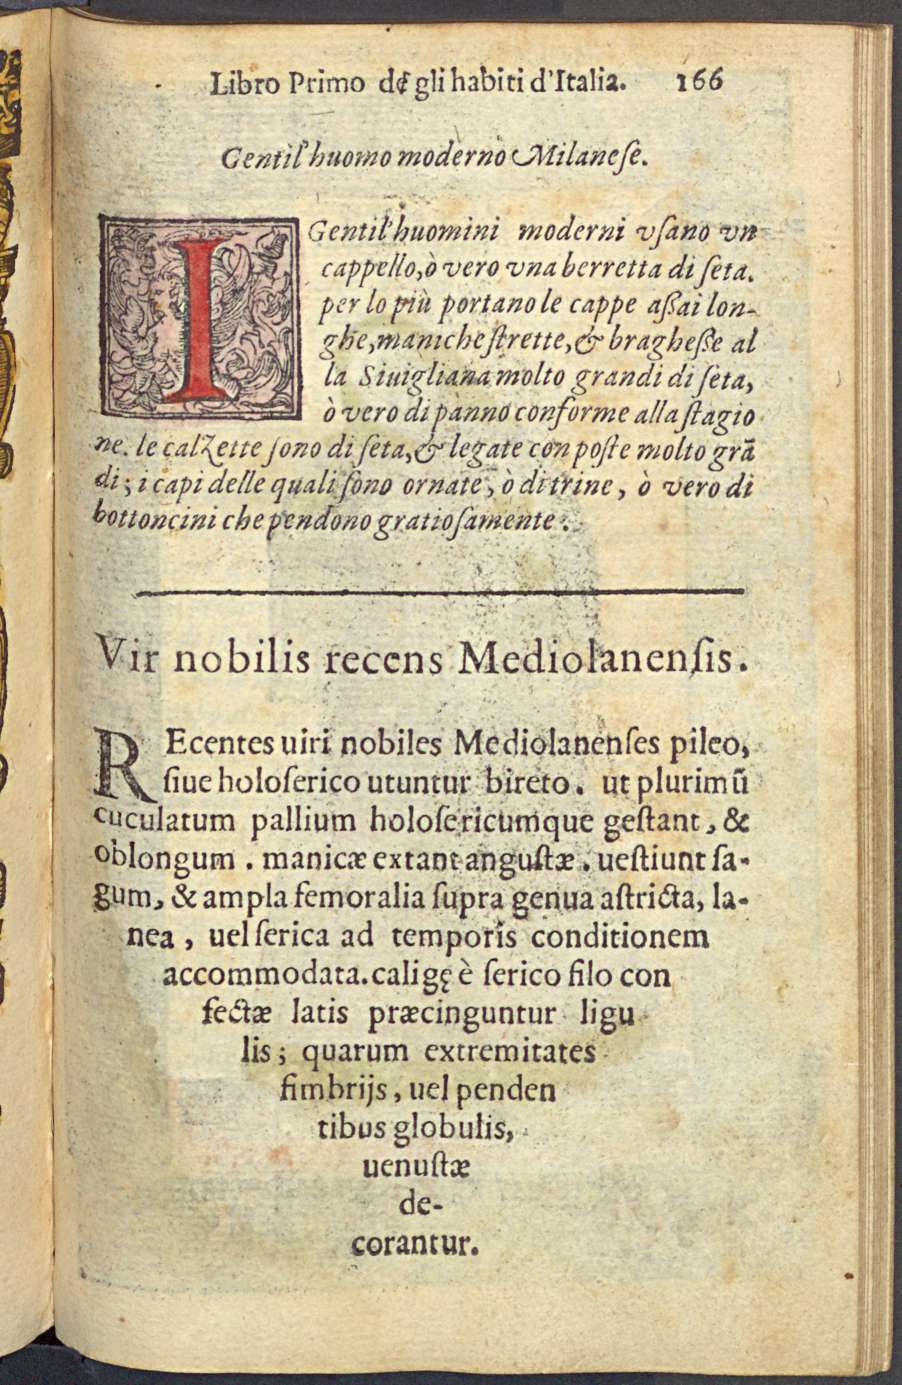 Libro Primo de gli habiti d'Italia. 166
Gentil'huomo moderno Milanese.
I Gentil'huomini moderni vsano vn
cappello, ò vero vna berretta di seta.
per lo più portano le cappe aſſai lon-
ghe, maniche ſtrette, & bragheſſe al
la Siuigliana molto grandi di ſeta,
ò vero di panno conforme alla ſtagio
ne. le calzette ſono di ſeta, & legate con poſte molto grā
di; i capi delle quali ſono ornate, ò di trine, ò vero di
bottoncini che pendono gratioſamente.
Vir nobilis recens Mediolanenſis.
REcentes uiri nobiles Mediolanenſes pileo,
ſiue holoſerico utuntur bireto. ut plurimū
cuculatum pallium holoſericumque geſtant, &
oblongum. manicæ extant anguſtæ. ueſtiunt ſa-
gum, & ampla femoralia ſupra genua aſtricta, la-
nea, uel ſerica ad temporis conditionem
accommodata. caligę è ſerico filo con
fectæ latis præcinguntur ligu
lis; quarum extremitates
fimbrijs, uel penden
tibus globulis,
uenuſtæ
de-
corantur.